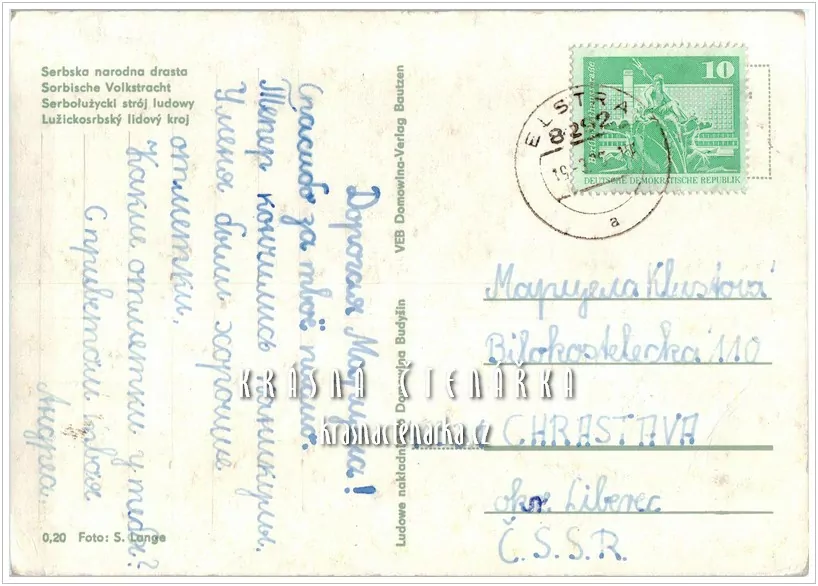 Serbska narodna drasta
Sorbische Volkstracht
Serbołużycki strój ludowy
Lužickosrbský lidový kroj
Дорогая Марцела!
Спасибо за твоё письмо.
Тепер кончились каникулы.
У меня были хорошие
отметки.
Какие отметки у тебя?
С приветом твоя
Андреа
0,20 Foto: S. Lange
VEB Domowina-Verlag Bautzen
Ludowe nakładnistwo Domowina Budyšin
ELSTRA
8292
a
10
DEUTSCHE DEMOKRATISCHE REPUBLIK
Марцела Klustová
Bílokostelecka 110
CHRASTAVA
okr. Liberec
Č.S.S.R.
KRÁSNÁ ČTENÁŘKA
krasnactenarka.cz